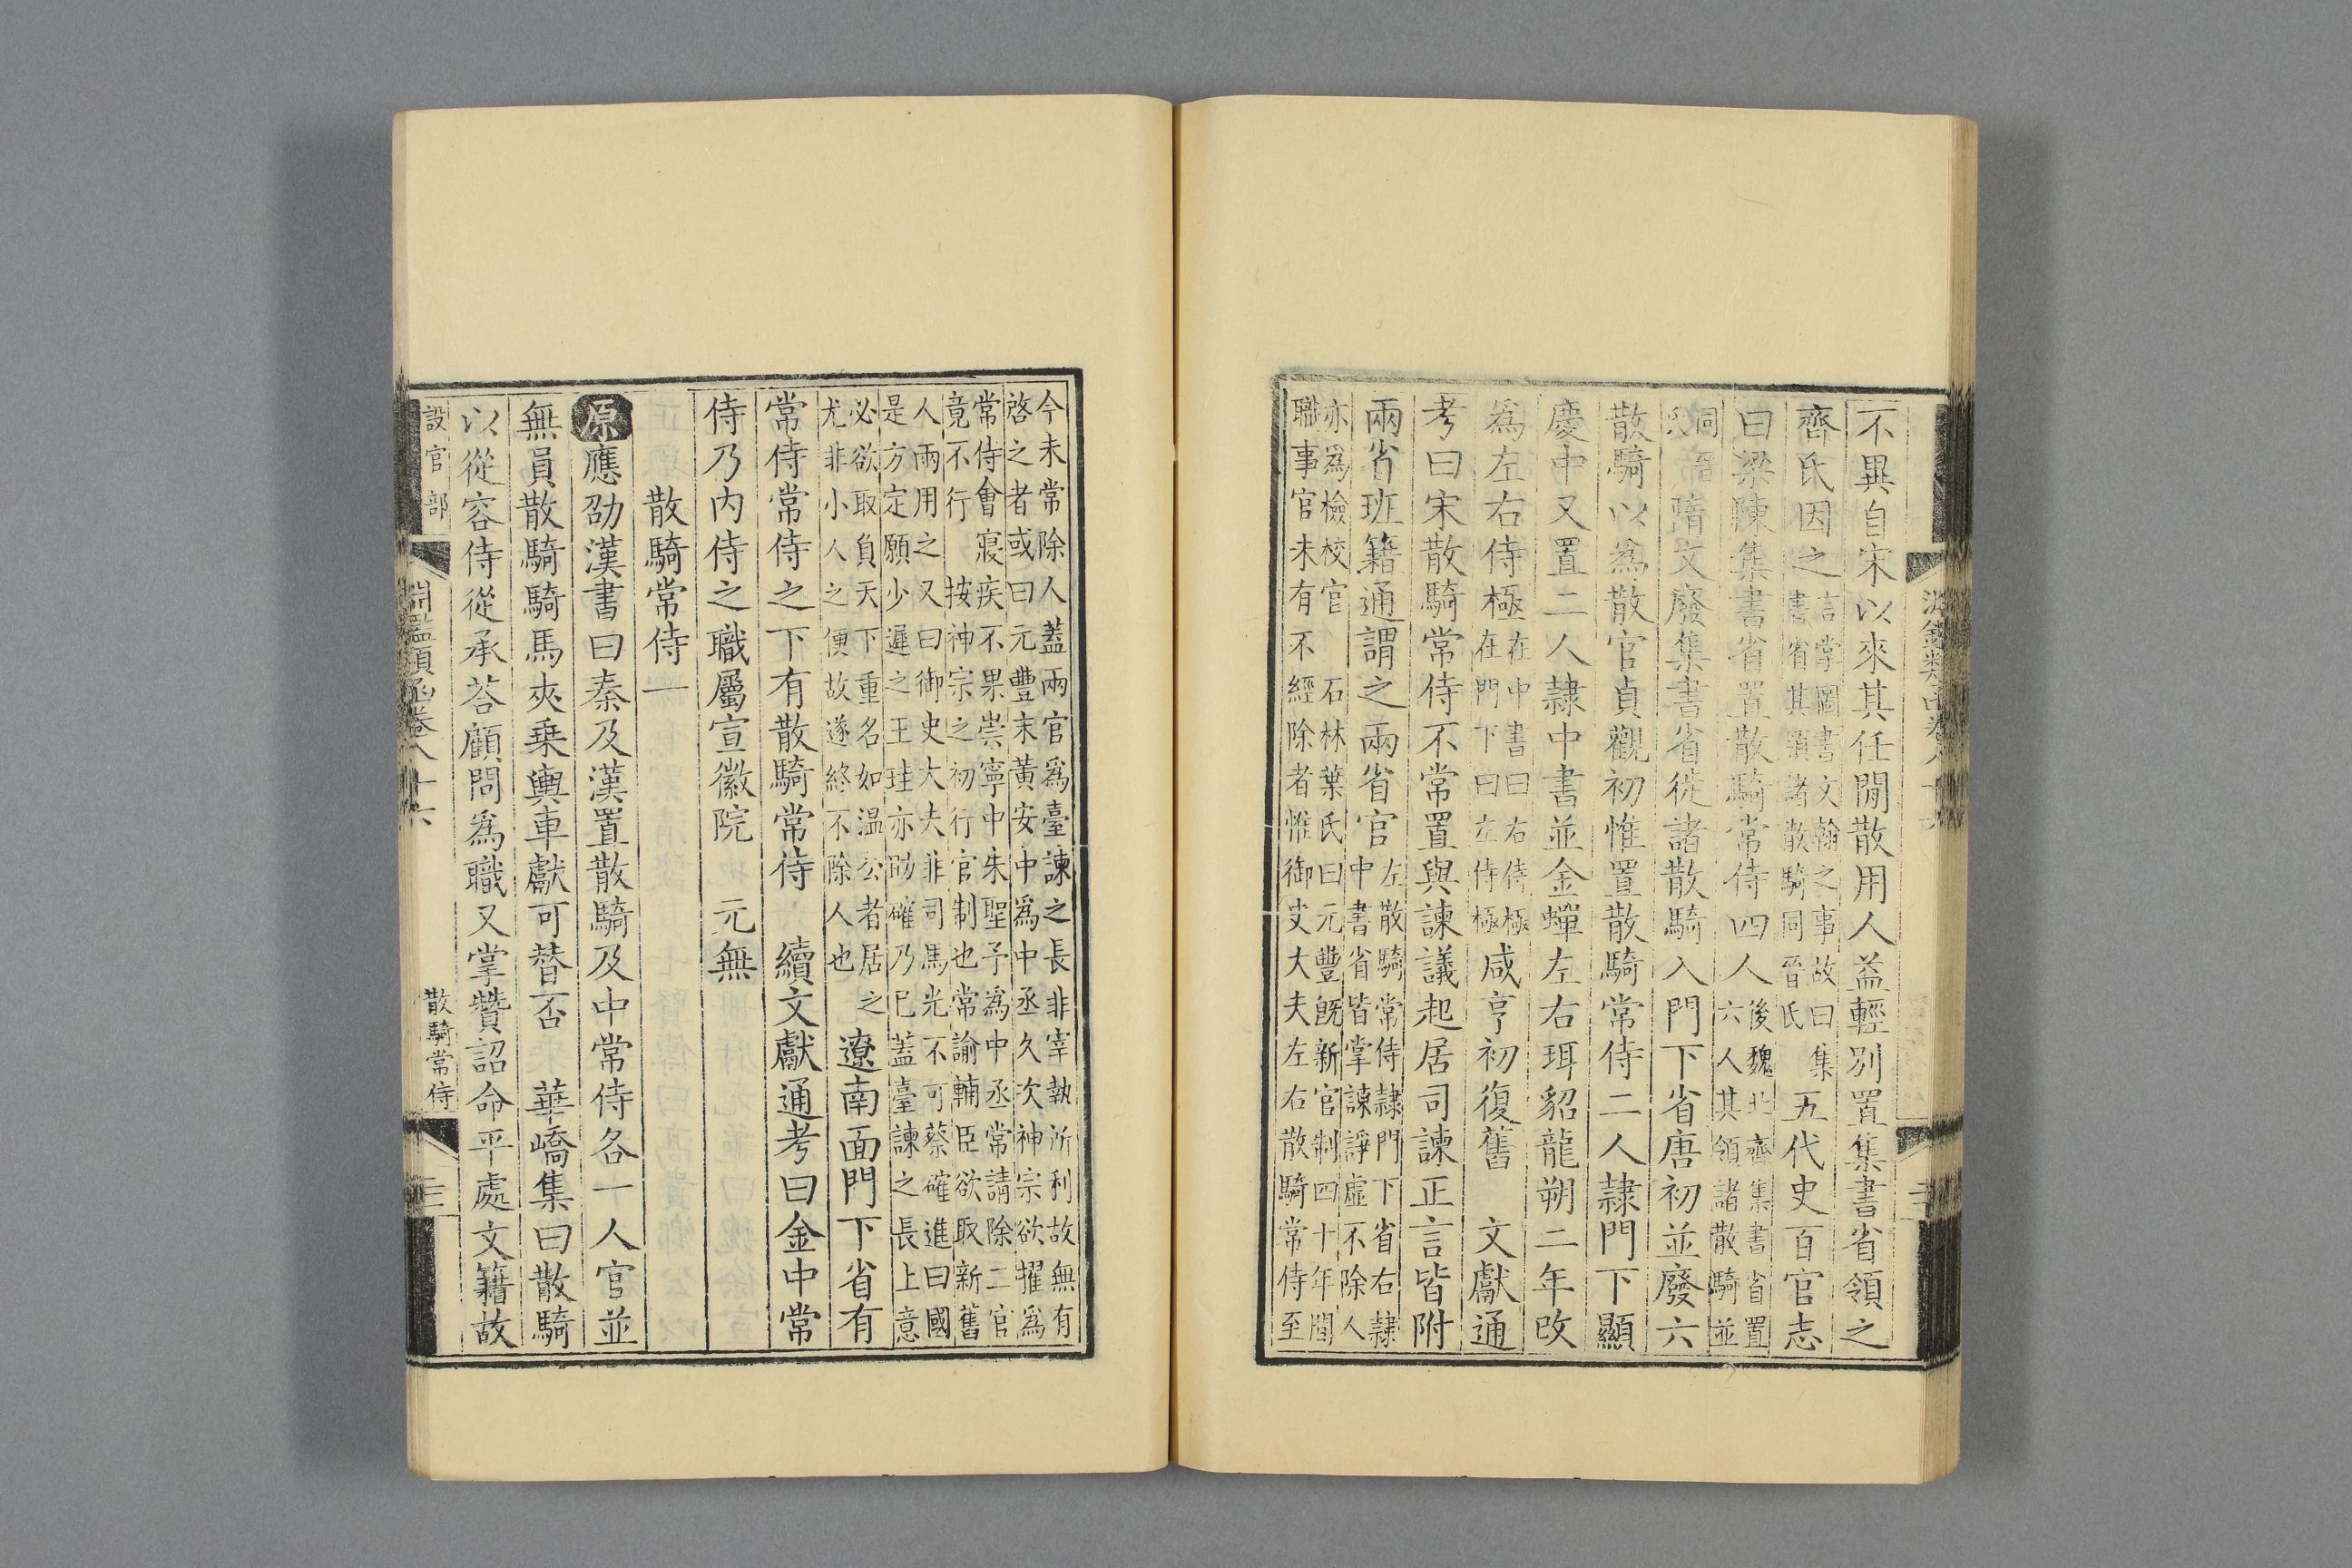 不異自宋以來其任閒散用人益輕別置集書省領之
齊氏因之言掌圖書文翰之事故曰集
書省其領諸散騎同晉氏五代史百官志
曰梁陳集書省置散騎常侍四人後魏北齊集書省置
六人其領諸散騎並
同晉
氏隋文廢集書省徙諸散騎入門下省唐初並廢六
散騎以爲散官貞觀初惟置散騎常侍二人隷門下顯
慶中又置二人隷中書並金蟬左右珥貂龍朔二年改
爲左右侍極在中書曰右侍極
在門下曰左侍極咸亨初復舊　文獻通
考曰宋散騎常侍不常置與諫議起居司諫正言皆附
兩省班籍通謂之兩省官左散騎常侍隷門下省右隷
中書省皆掌諫諍虛不除人
亦爲檢校官　石林葉氏曰元豐旣新官制四十年間
職事官未有不經除者惟御史大夫左右散騎常侍至
今未常除人蓋兩官爲臺諫之長非宰執所利故無有
啓之者或曰元豐末黃安中爲中丞久次神宗欲擢爲
常侍會寢疾不果崇寧中朱聖予爲中丞常請除二官
竟不行　按神宗之初行官制也常諭輔臣欲取新舊
人兩用之又曰御史大夫非司馬光不可蔡確進曰國
是方定願少遲之王珪亦助確乃已蓋臺諫之長上意
必欲取負天下重名如温公者居之
尤非小人之便故遂終不除人也　遼南面門下省有
常侍常侍之下有散騎常侍　續文獻通考曰金中常
侍乃內侍之職屬宣徽院　元無
散騎常侍一
原應劭漢書曰秦及漢置散騎及中常侍各一人官並
無員散騎騎馬夾乗輿車獻可替否　華嶠集曰散騎
以從容侍從承荅顧問爲職又掌贊詔命平處文籍故
設官部
淵鑑類函卷八十六
散騎常侍
三